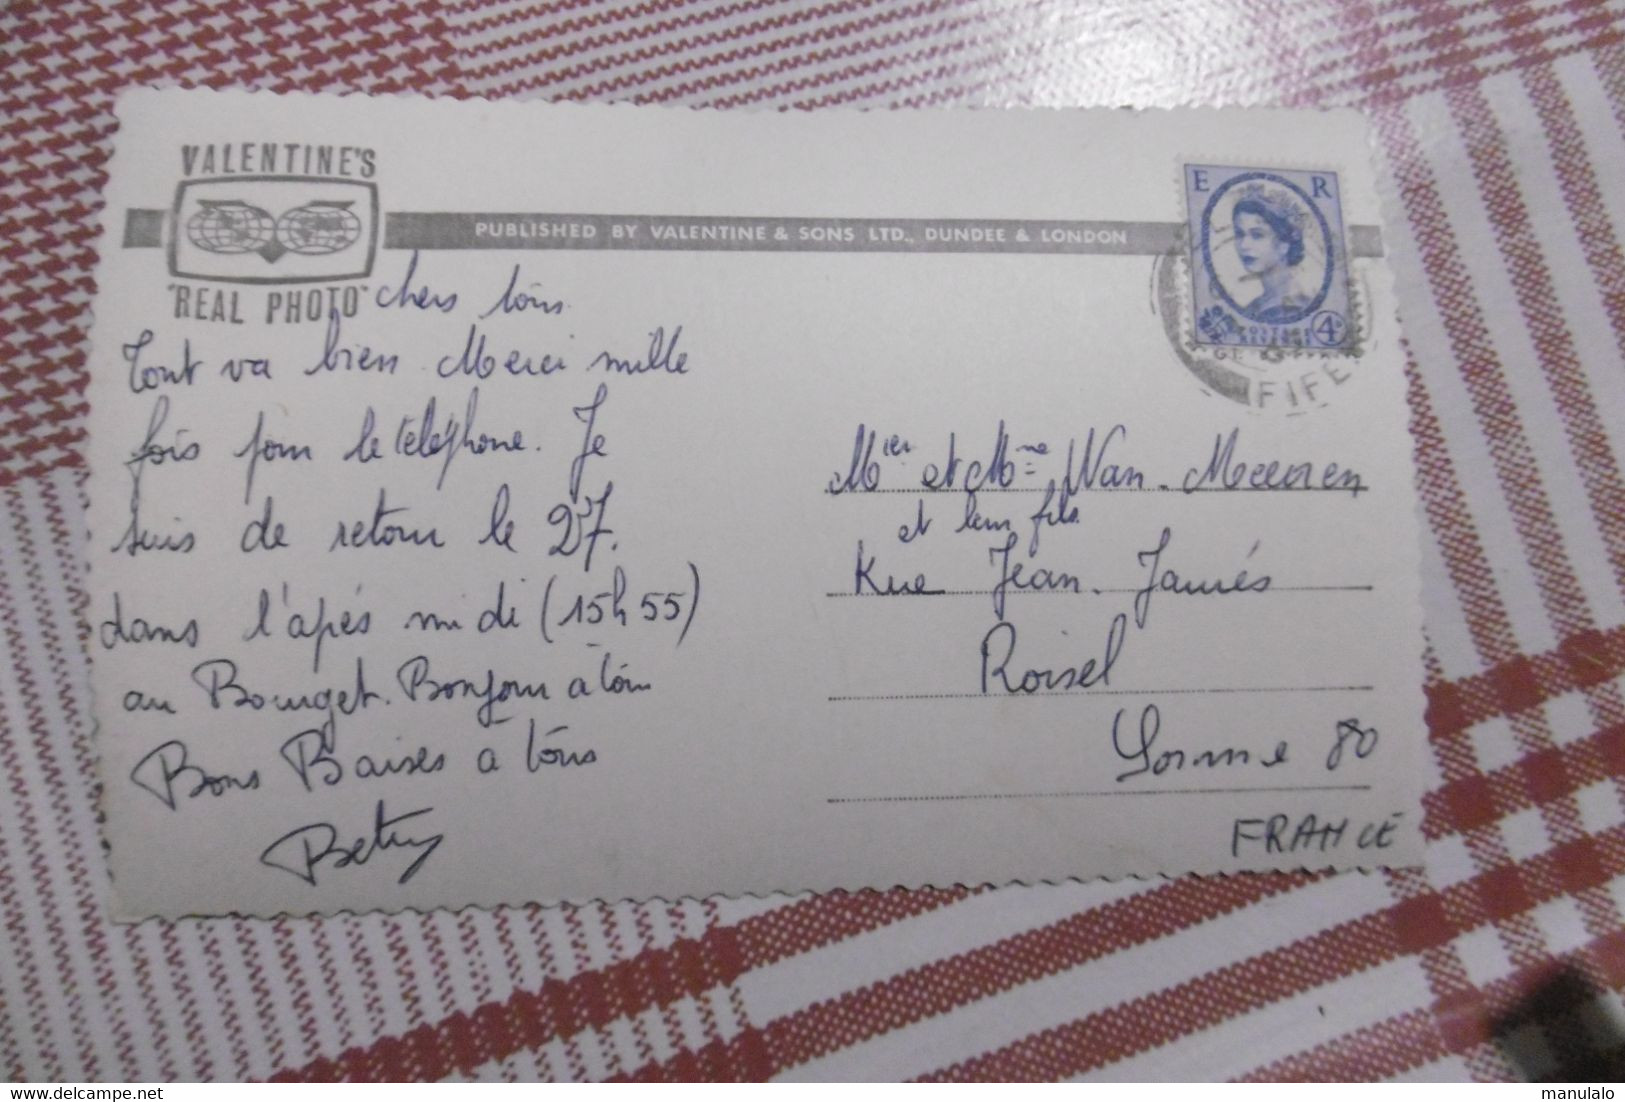 VALENTINE'S
"REAL PHOTO"
PUBLISHED BY VALENTINE & SONS LTD., DUNDEE & LONDON
E R
POSTAGE
REVENUE
4D
FIFE
chers tous
Tout va bien. Merci mille
fois pour le téléphone. Je
suis de retour le 27.
dans l'après midi (15h55)
au Bourget. Bonjour à tous
Bons Baises à tous
Betty
Mier et Mme Van. Meeoren
et leur fils
Rue Jean. Jaurés
Roisel
Somme 80
FRANCE
manulalo